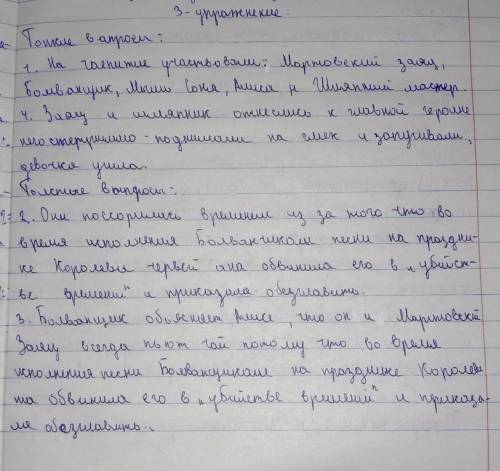 3-упражнение.
Тонкие вопросы:
1. На чаепитие участвовали: Мартовский заяц,
Болванщик, Мышь Соня, Алиса и Шляпний мастер.
4. Заяц и шляпник отнеслись к главной героине
- поднимали на смех и запугивали,
девочка ушла.
Толстые вопросы:
2. Они поссорились временем из за того что во
время исполнения Болванщиком песни на праздни-
ке Королевы червей она обвинила его в „убийст-
ве времени" и приказала обезглавить.
3. Болванщик объясняет Алисе, что он и Мартовский
Заяц всегда пьют чай потому что во время
исполнения песни Болванщиком на празднике Королева
та обвинила его в „убийстве времений" и приказа-
ла обезглавить.